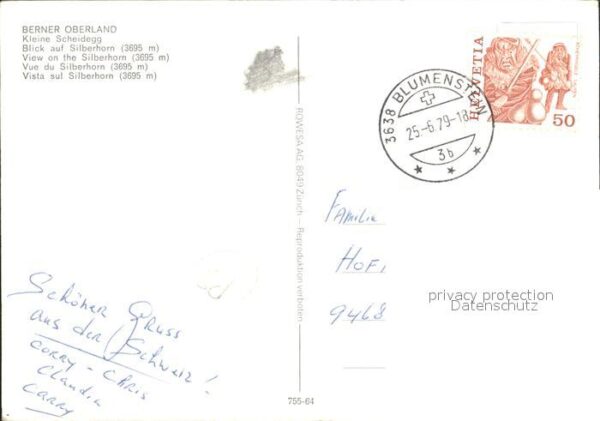 BERNER OBERLAND
Kleine Scheidegg
Blick auf Silberhorn (3695 m)
View on the Silberhorn (3695 m)
Vue du Silberhorn (3695 m)
Vista sul Silberhorn (3695 m)
HELVETIA
50
3638 BLUMENSTEIN
25.-6.79-18
3b
ROWESA AG, 8049 Zürich — Reproduktion verboten
Familie
HOFI
9468
privacy protection
Datenschutz
Schöner Gruss
aus der Schweiz!
CORRY - CHRIS
Claudia
CARRY
755-64